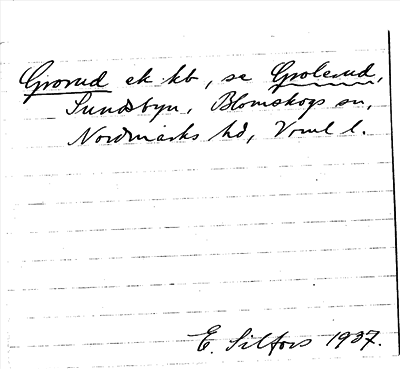 Grorud ek kb, se Grolerud,
Sundsbyn, Blomskogs sn,
Nordmarks hd, Vrml l.
E. Silfors 1937.